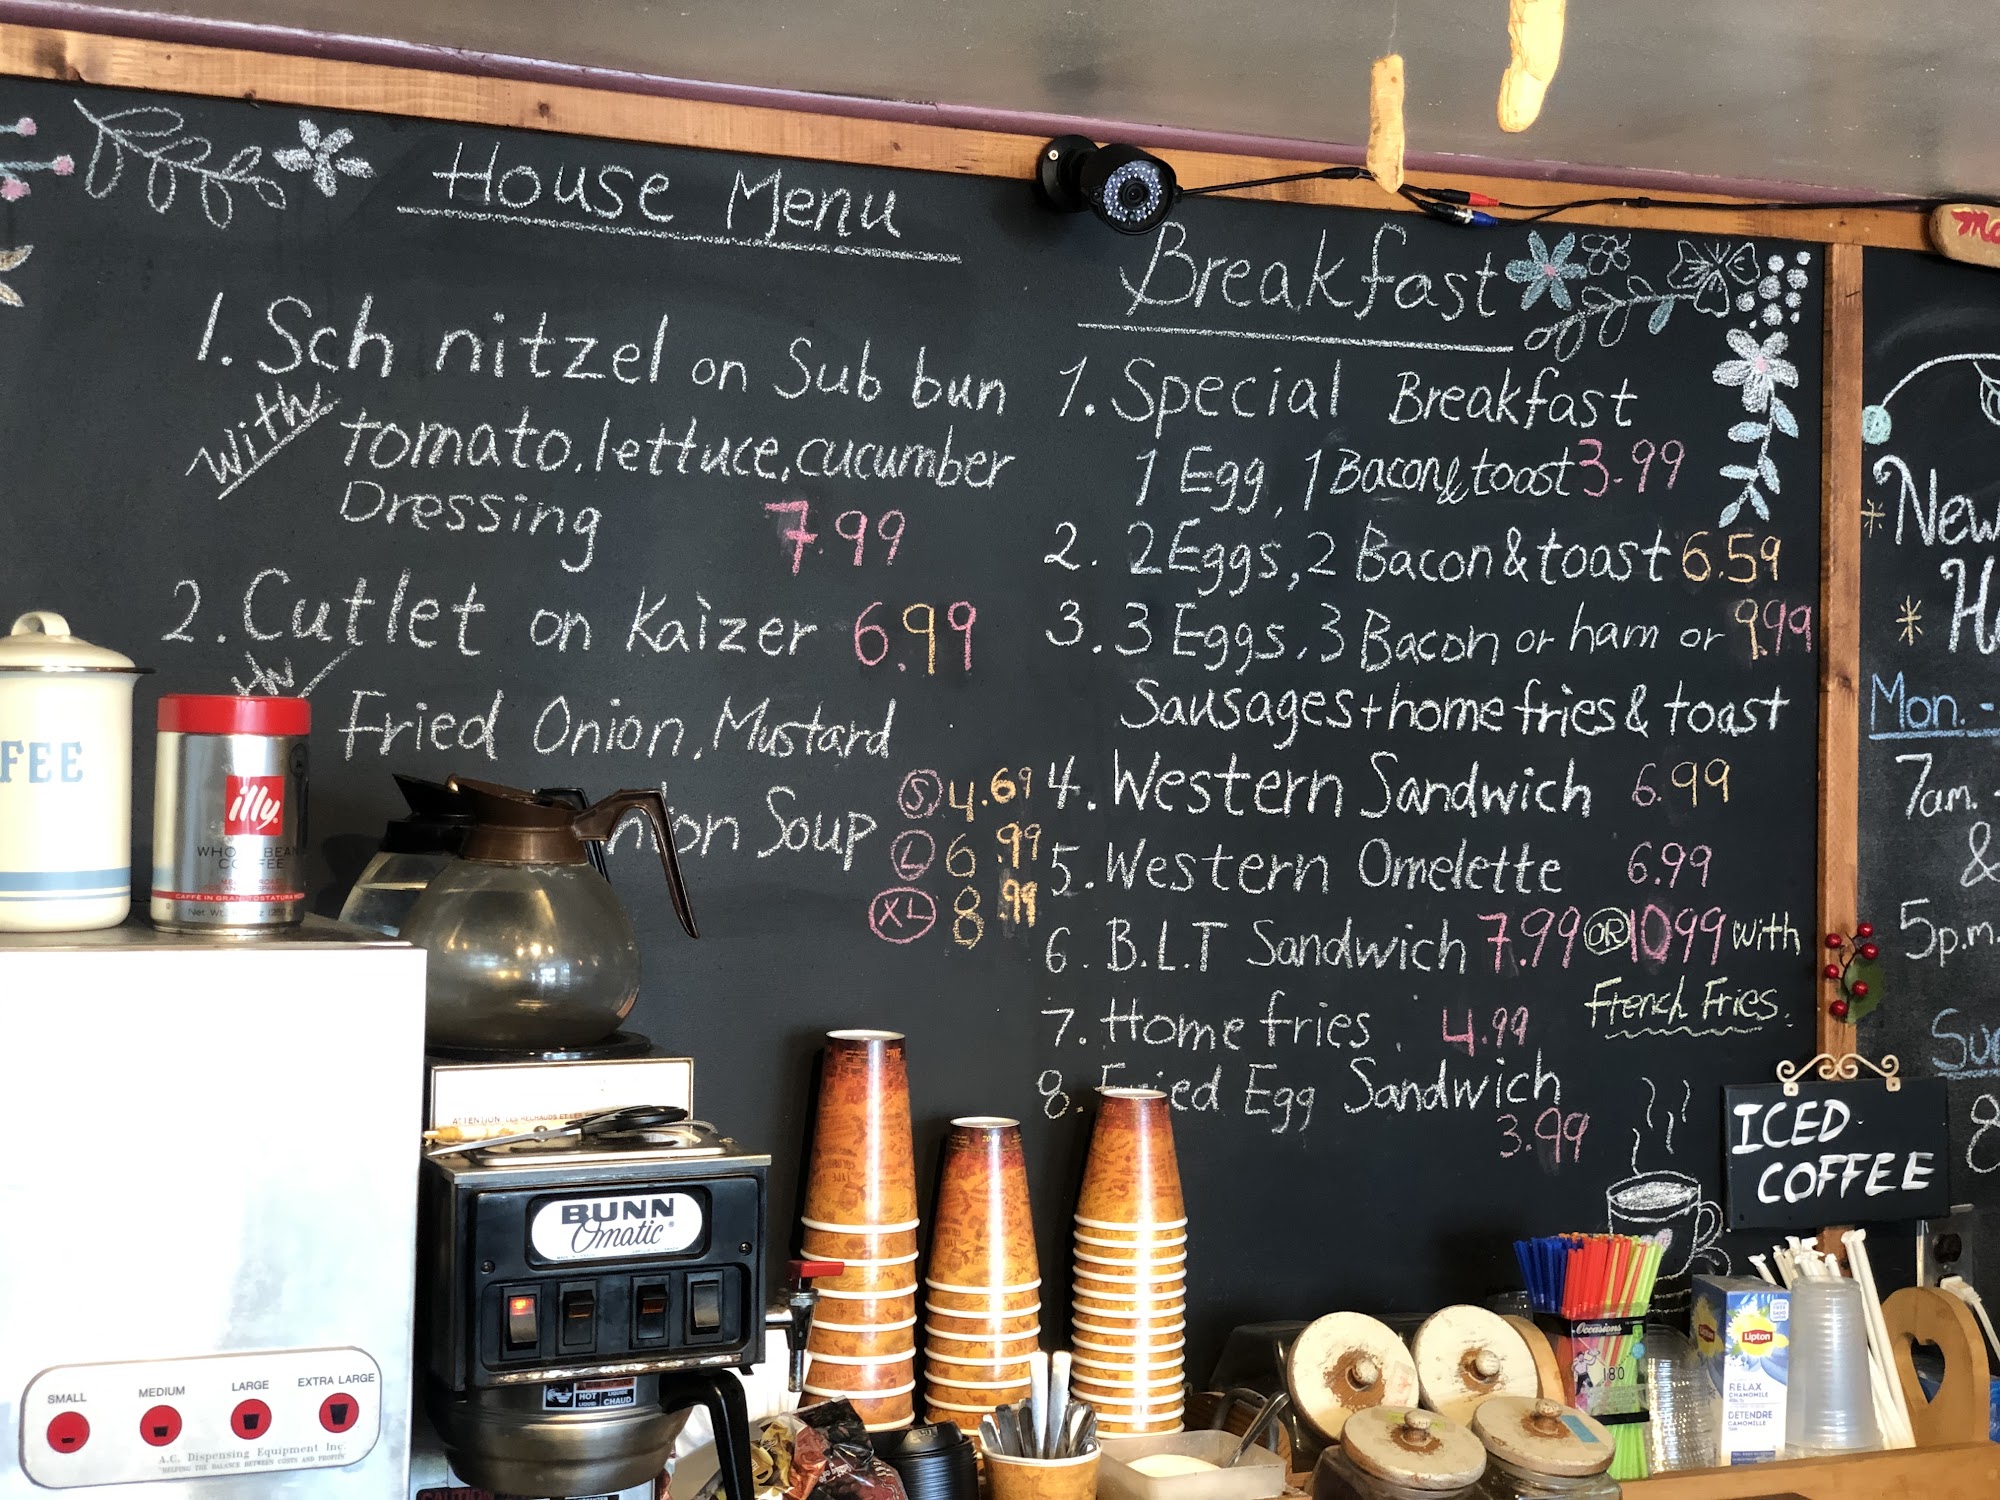 House Menu
1. Schnitzel on Sub bun
With tomato, lettuce, cucumber
Dressing 7.99
2. Cutlet on Kaizer 6.99
Fried Onion, Mustard
Soup S 4.69
L 6.99
XL 8.99
Breakfast
1. Special Breakfast
1 Egg, 1 Bacon & toast 3.99
2. 2 Eggs, 2 Bacon & toast 6.59
3. 3 Eggs, 3 Bacon or ham or 9.99
Sausages + home fries & toast
4. Western Sandwich 6.99
5. Western Omelette 6.99
6. B.L.T Sandwich 7.99 OR 10.99 with
French Fries.
7. Home fries. 4.99
8. Fried Egg Sandwich
3.99
New
Mon. -
7am. -
&
5p.m.
ICED
COFFEE
FEE
illy
WHOLE BEAN
COFFEE
CAFFÈ IN GRANI TOSTATURA
BUNN
Omatic
HOT
LIQUID
LIQUIDE
CHAUD
SMALL
MEDIUM
LARGE
EXTRA LARGE
A.C. Dispensing Equipment Inc.
"HELPING THE BALANCE BETWEEN COSTS AND PROFITS"
Occasions
180
Lipton
RELAX
CHAMOMILE
DÉTENDRE
CAMOMILLE
CAUTION